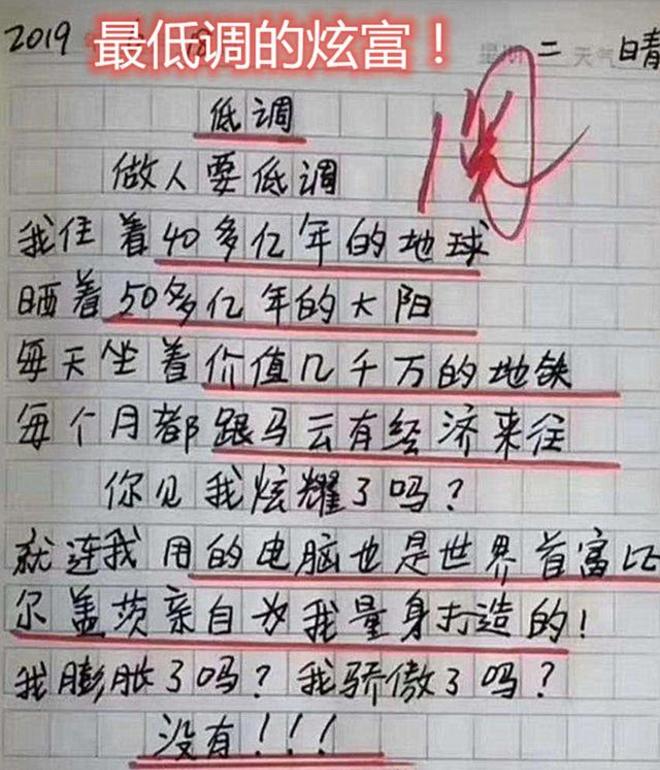 2019
最低调的炫富！
星期二 天气 晴
低调
阅
做人要低调
我住着40多亿年的地球
晒着50多亿年的太阳
每天坐着价值几千万的地铁
每个月都跟马云有经济来往
你见我炫耀了吗？
就连我用的电脑也是世界首富比
尔盖茨亲自为我量身打造的！
我膨胀了吗？我骄傲了吗？
没有！！！